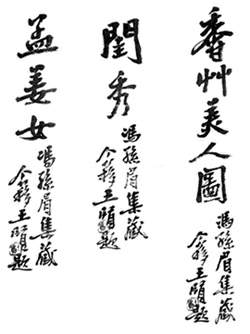 香艸美人圖
馮孫眉集藏
王頤題
閨秀
馮孫眉集藏
王頤題
孟姜女
馮孫眉集藏
王頤題